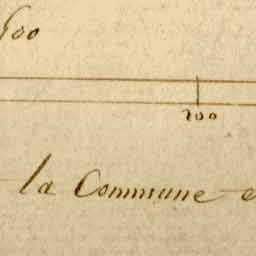 600
200
la Commune